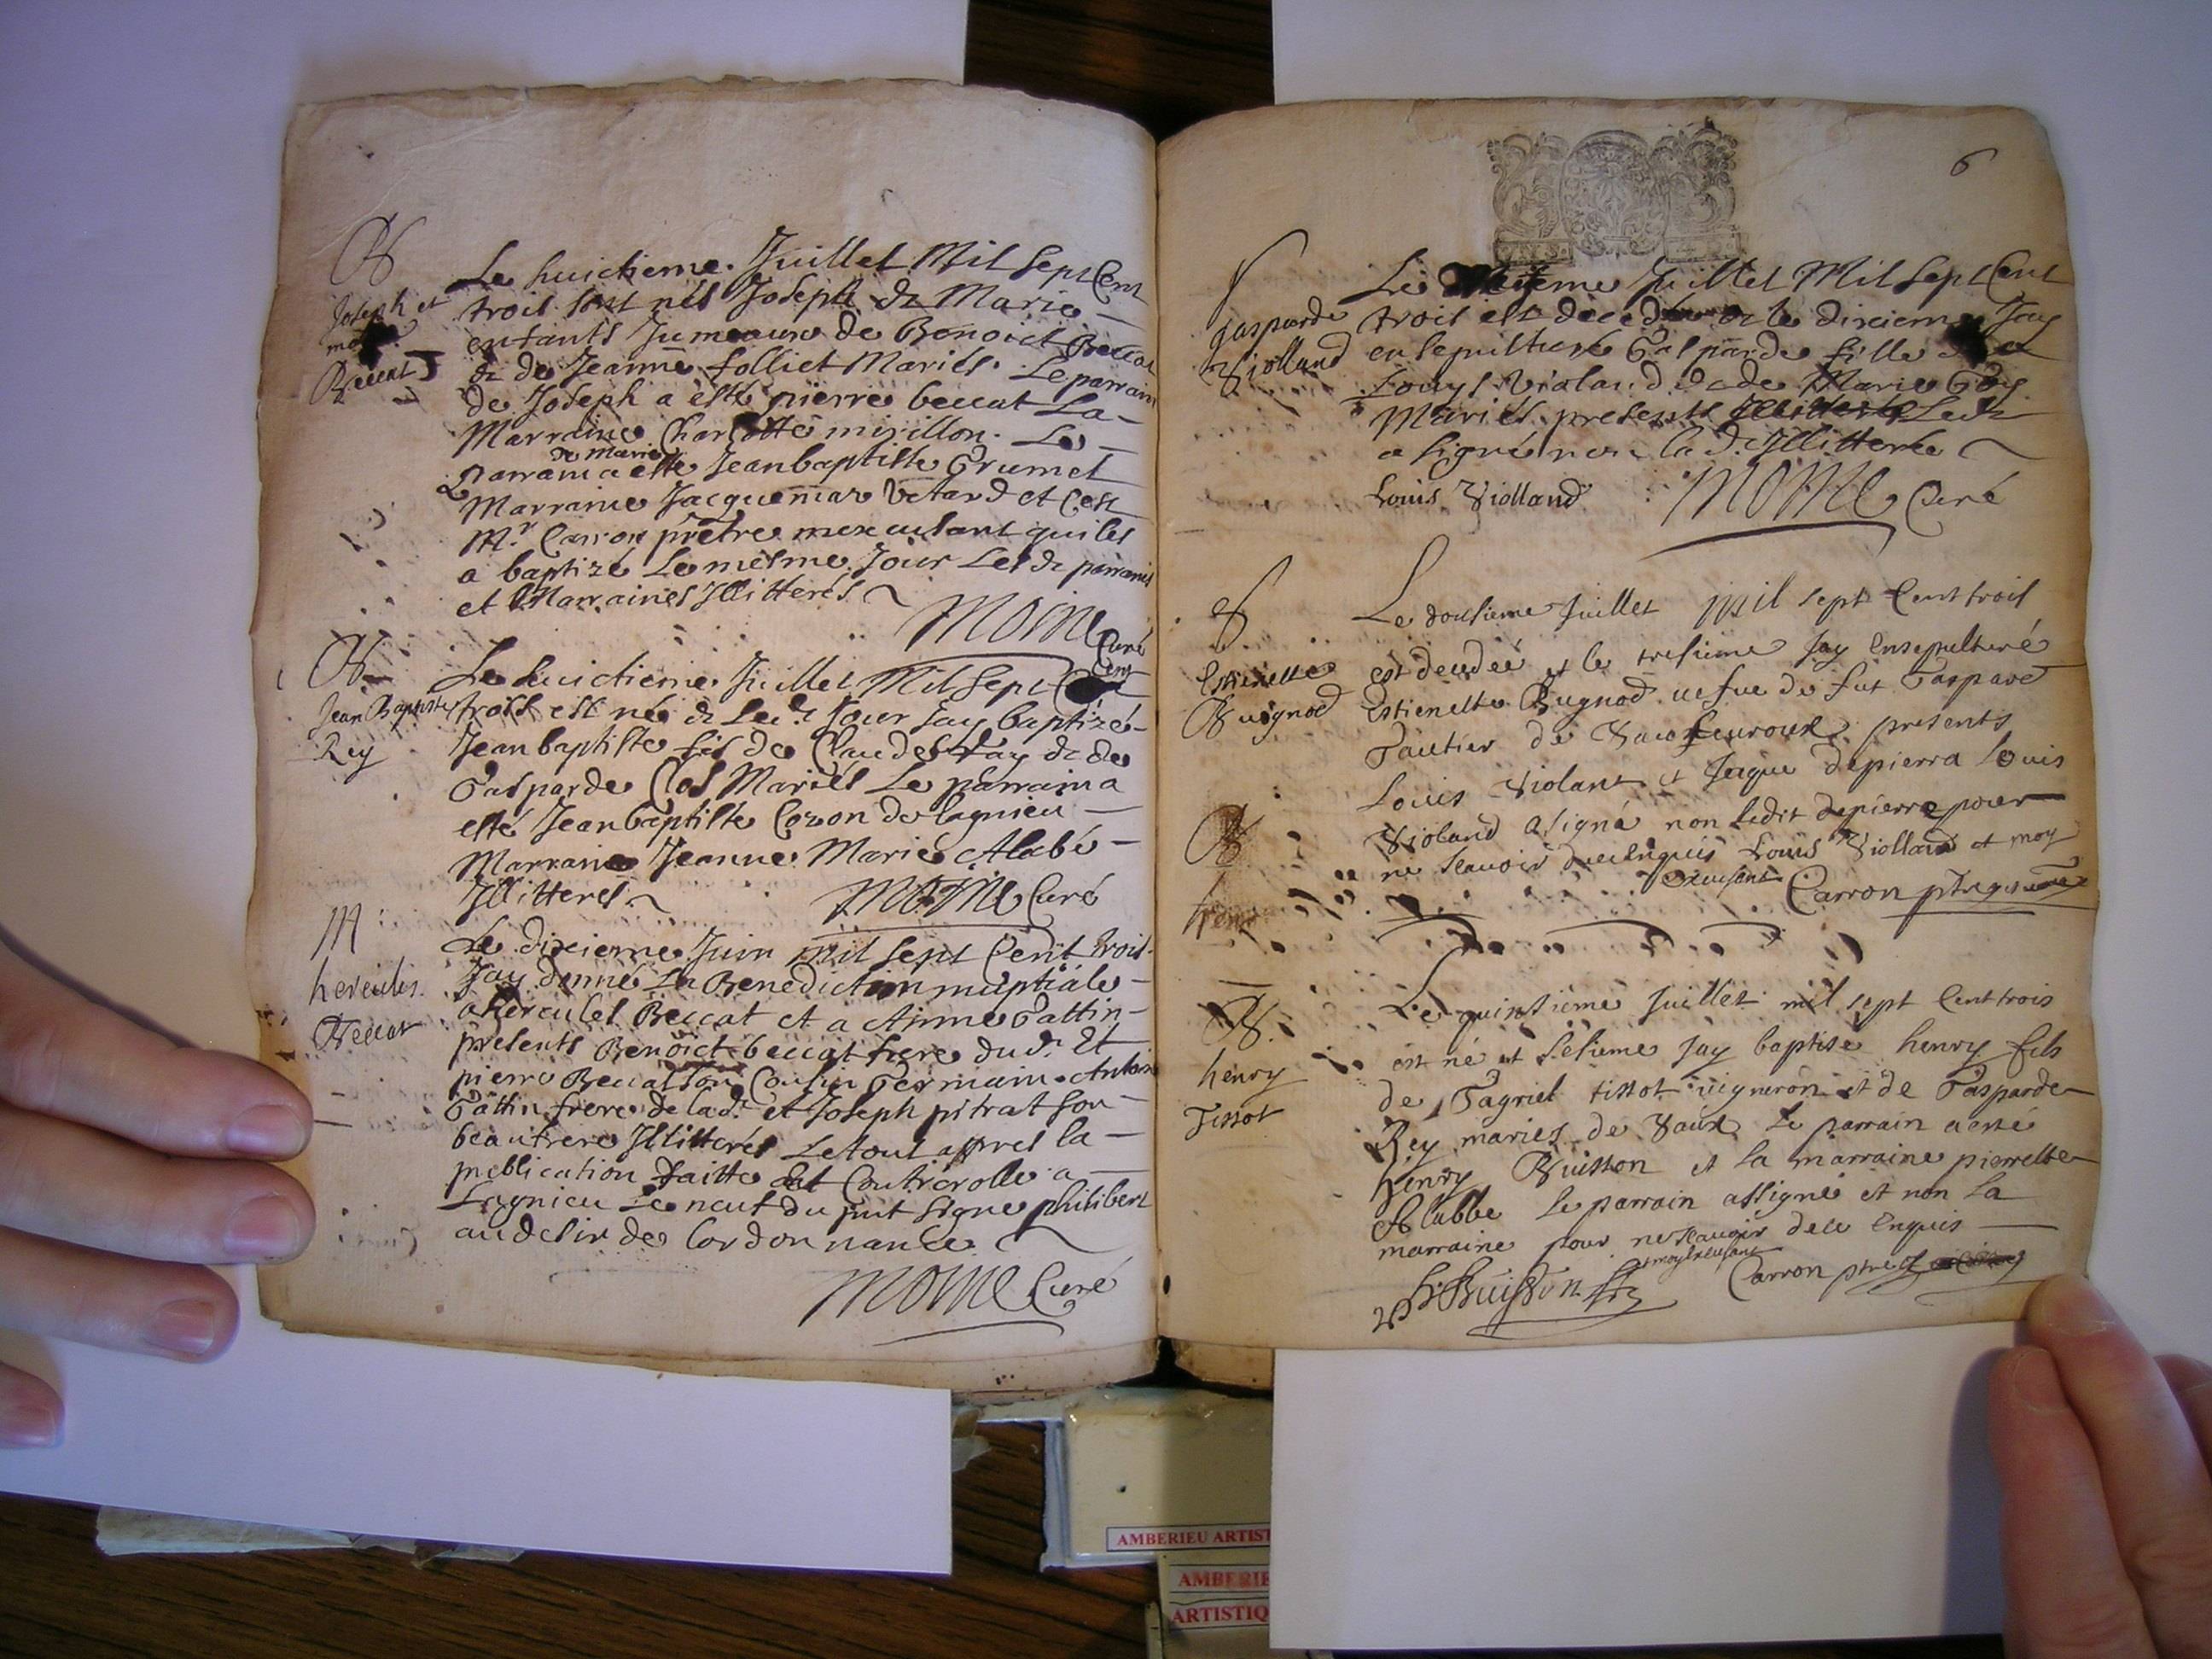 B
Joseph et
Beccat
Le huictieme Juillet Mil Sept Cent
trois sont nés Joseph & Marie
enfants Jumeaux de Benoict Beccat
& de Jeanne folliet Mariés. Le parrain
de Joseph a esté pierre beccat La
Marraine Charlotte mirillon. Le
de Marie
parrain a esté Jeanbaptiste Grumet
Marraine Jacquemaz et c'est
Mr. Carron prêtre mexcusant qui les
a baptizé Le mesme Jour Les d. parrains
et Marraines Illitterés
Moine Curé
B
Jean Baptiste
Rey
Le huictieme Juillet Mil Sept Cent
trois est né & led. Jour Jay baptizé
Jeanbaptiste fils de Claude Ray & de
Gasparde Clos Mariés Le parrain a
esté Jeanbaptiste Cozon de lagnieu
Marraine Jeanne Marie Alabe
Illitterés
Moine Curé
M
hercules
Beccat
Le dixieme Juin mil sept Cent trois
Jay donné La Benediction nuptiale
a Hercules Beccat et a Anne Gattin
presents Benoict beccat frere du d. Et
pierre Beccat son Cousin Germain. Antoine
Gattin frere de lad. et Joseph pitrat son
beaufrere Illitterés Le tout appres la
publication faitte et Controrolle a
Lagnieu Le neuf du pnt Signe philibert
au desir de Lordonnance
Moine Curé
6
S
gasparde
Violland
Le Juillet Mil Sept Cent
trois est decedée & le dixieme Jay
ensepulturé Gasparde fille de
Louys Violand & de Marie
Mariés presents Led.
a signé non la d. Illitterée
Louis Violland
Moine Curé
S
Estienette
Bugnod
Le dousieme Juillet mil sept Cent trois
est decedée et le tresieme Jay ensepulturé
Estienette Bugnod vefve de fut Gaspard
Gautier de presents
Louis Violant et Jaque depierra louis
Violand a signé non ledit depierre pour
ne scavoir de ce enquis Louis Violland et moy
excusant Carron ptre
B
henry
B.
henry
Tissot
Le quinsieme Juillet mil sept Cent trois
est né et le sesieme Jay baptisé henry fils
de Gagriel tissot vigneron et de Gasparde
Rey mariés de Vaux Le parrain a esté
henry Buisson et la marraine pierrette
Alabbe le parrain a signé et non la
marraine pour ne scavoir de ce enquis
moy excusant
H. Buisson
Carron ptre
AMBERIEU ARTIST
AMBERIE
ARTISTIQ